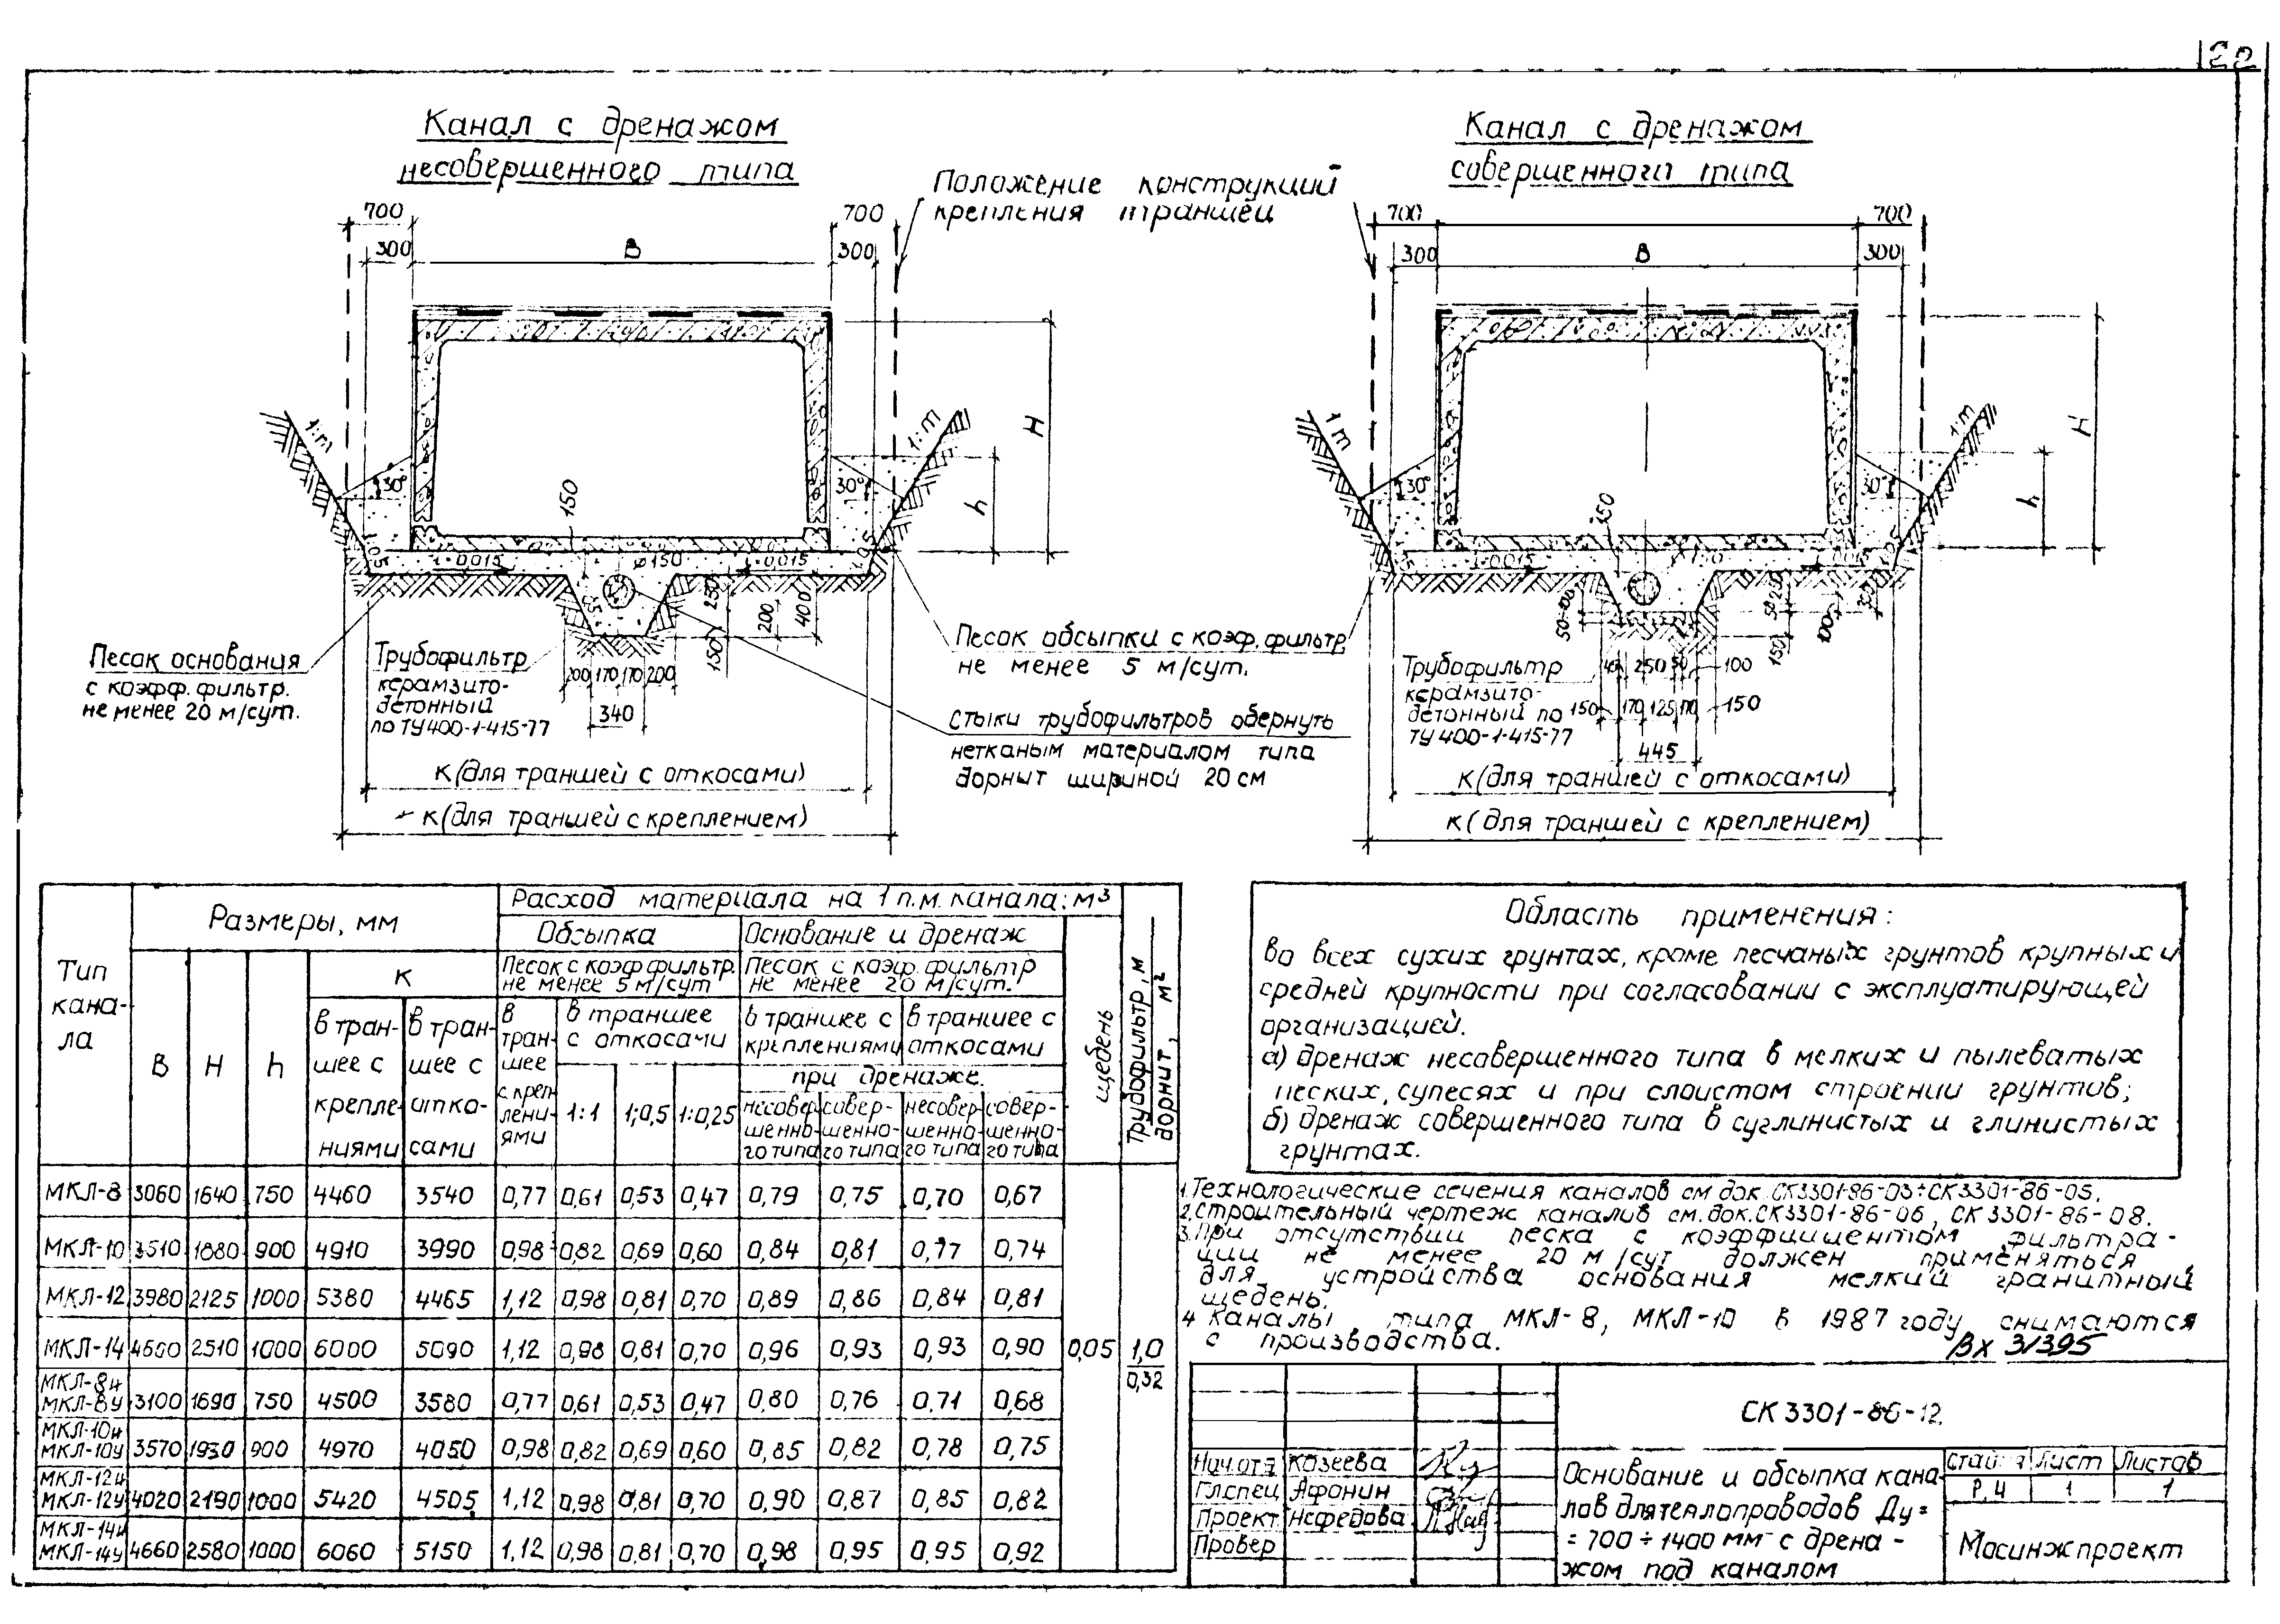 Канал с дренажом
несовершенного типа
Канал с дренажом
совершенного типа
Положение конструкций
крепления траншеи
700
700
300
B
300
700
700
300
B
300
1:m
1:m
30°
30°
150
h
H
i-0,015
ø150
i-0,015
250
200
400
150
200 170 170 200
340
1:m
1:m
30°
30°
150
h
H
i-0,015
50-100
100
150
250 50 100
150 170 125 170 150
445
Песок основания
с коэфф. фильтр.
не менее 20 м/сут.
Трубофильтр
керамзито-
бетонный
по ТУ 400-1-415-77
Песок обсыпки с коэф. фильтр.
не менее 5 м/сут.
стыки трубофильтров обернуть
нетканым материалом типа
дорнит шириной 20 см
Трубофильтр
керамзито-
бетонный по
ТУ 400-1-415-77
к (для траншей с откосами)
к (для траншей с креплением)
к (для траншей с откосами)
к (для траншей с креплением)
Тип кана-ла
Размеры, мм
Расход материала на 1 п.м. канала: м³
Обсыпка
Основание и дренаж
щебень
Трубофильтр, м
дорнит, м²
Песок с коэф фильтр. не менее 5 м/сут
Песок с коэф. фильтр не менее 20 м/сут.
B H h
к
в тран-шее с крепле-ниями
в тран-шее с отко-сами
в тран-шее с креп-лени-ями
в траншее с откосами
в траншее с креплениями
в траншее с откосами
при дренаже.
1:1 1:0,5 1:0,25
несовер-шенно-го типа
совер-шенно-го типа
несовер-шенно-го типа
совер-шенно-го типа
МКЛ-8 3060 1640 750 4460 3540 0,77 0,61 0,53 0,47 0,79 0,75 0,70 0,67
МКЛ-10 3510 1880 900 4910 3990 0,98 0,82 0,69 0,60 0,84 0,81 0,77 0,74
МКЛ-12 3980 2125 1000 5380 4465 1,12 0,98 0,81 0,70 0,89 0,86 0,84 0,81
МКЛ-14 4600 2510 1000 6000 5090 1,12 0,98 0,81 0,70 0,96 0,93 0,93 0,90 0,05 1,0
0,32
МКЛ-8н
МКЛ-8у 3100 1690 750 4500 3580 0,77 0,61 0,53 0,47 0,80 0,76 0,71 0,68
МКЛ-10н
МКЛ-10у 3570 1930 900 4970 4050 0,98 0,82 0,69 0,60 0,85 0,82 0,78 0,75
МКЛ-12н
МКЛ-12у 4020 2190 1000 5420 4505 1,12 0,98 0,81 0,70 0,90 0,87 0,85 0,82
МКЛ-14н
МКЛ-14у 4660 2580 1000 6060 5150 1,12 0,98 0,81 0,70 0,98 0,95 0,95 0,92
Область применения:
во всех сухих грунтах, кроме песчаных грунтов крупных и
средней крупности при согласовании с эксплуатирующей
организацией.
а) дренаж несовершенного типа в мелких и пылеватых
песках, супесях и при слоистом строении грунтов;
б) дренаж совершенного типа в суглинистых и глинистых
грунтах.
1. Технологические сечения каналов см док. СК3301-86-03÷СК3301-86-05.
2. Строительный чертеж каналов см. док. СК3301-86-06, СК 3301-86-08.
3. При отсутствии песка с коэффициентом фильтра-
ции не менее 20 м/сут должен применяться
для устройства основания мелкий гранитный
щебень.
4 Каналы типа МКЛ-8, МКЛ-10 в 1987 году снимаются
с производства.
Вх 31395
СК 3301-86-12.
Нач отд Козеева
Гл.спец Афонин
Проект. Нефедова
Провер
Основание и обсыпка кана-
лов для теплопроводов Ду=
= 700 ÷ 1400 мм с дрена-
жом под каналом
Стадия Лист Листов
Р, Ч 1 1
Мосинжпроект